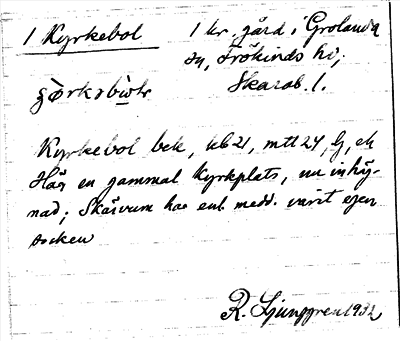 1 Kyrkebol
1 kr. gård i Grolanda
sn, Frökinds hd,
Skarab. l.
Kyrkebol bek, ub 21, mtt 24, G, ek
Här en gammal kyrkplats, nu inhäg-
nad; Skärvum har enl. medd. varit egen
socken
R. Ljunggren 1932